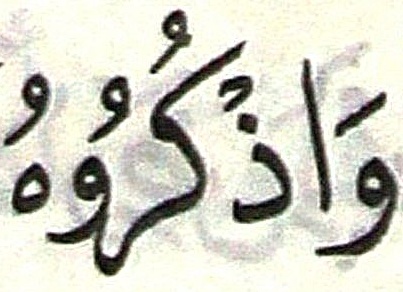 وَاذْكُرُوهُ